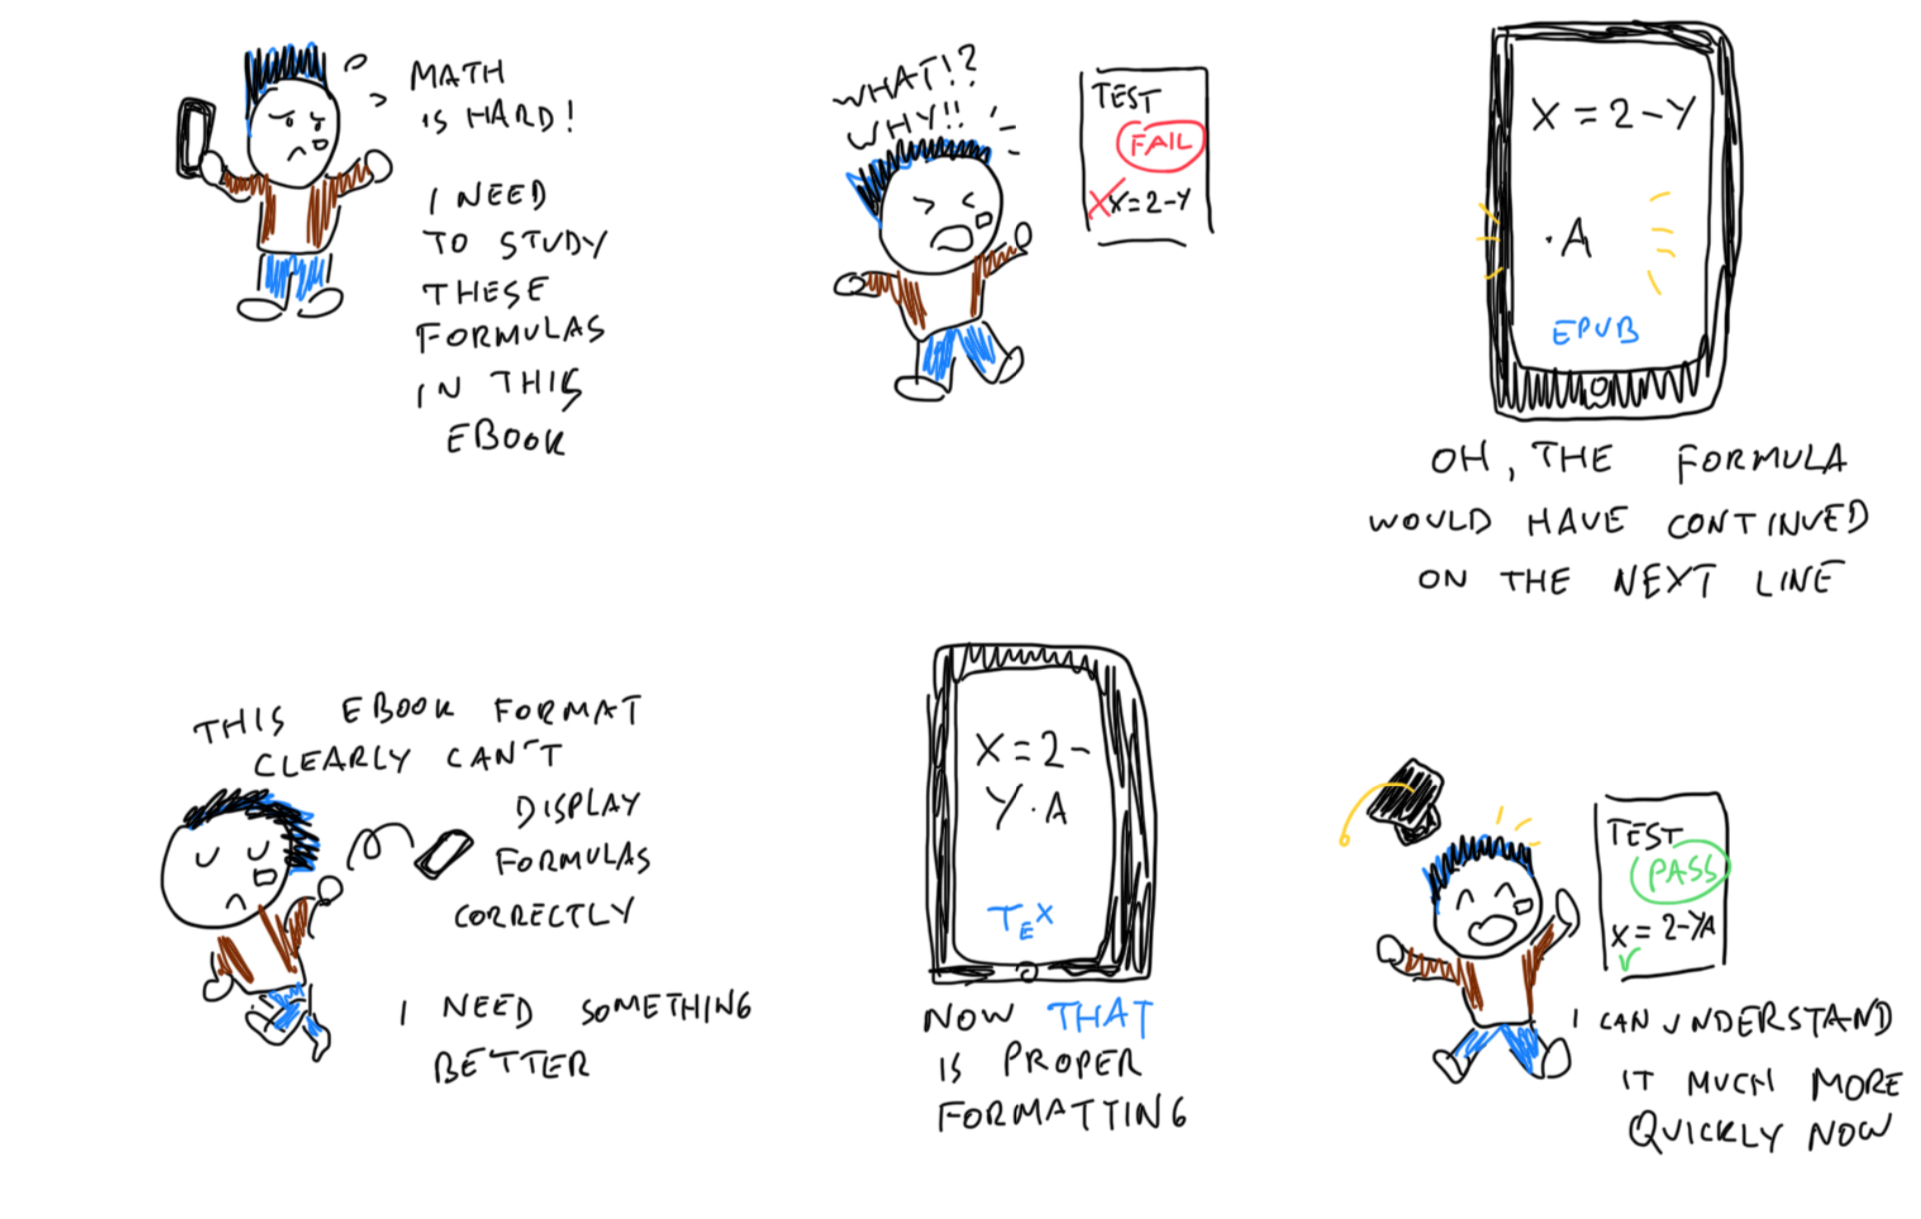 MATH
IS HARD!
I NEED
TO STUDY
THESE
FORMULAS
IN THIS
EBOOK
WHAT!?
WHY!!
TEST
FAIL
X=2-Y
X=2-Y
·A
EPUB
OH, THE FORMULA
WOULD HAVE CONTINUED
ON THE NEXT LINE
THIS EBOOK FORMAT
CLEARLY CAN'T
DISPLAY
FORMULAS
CORRECTLY
I NEED SOMETHING
BETTER
X=2-
Y·A
TEX
NOW THAT
IS PROPER
FORMATTING
TEST
PASS
X=2-YA
I CAN UNDERSTAND
IT MUCH MORE
QUICKLY NOW